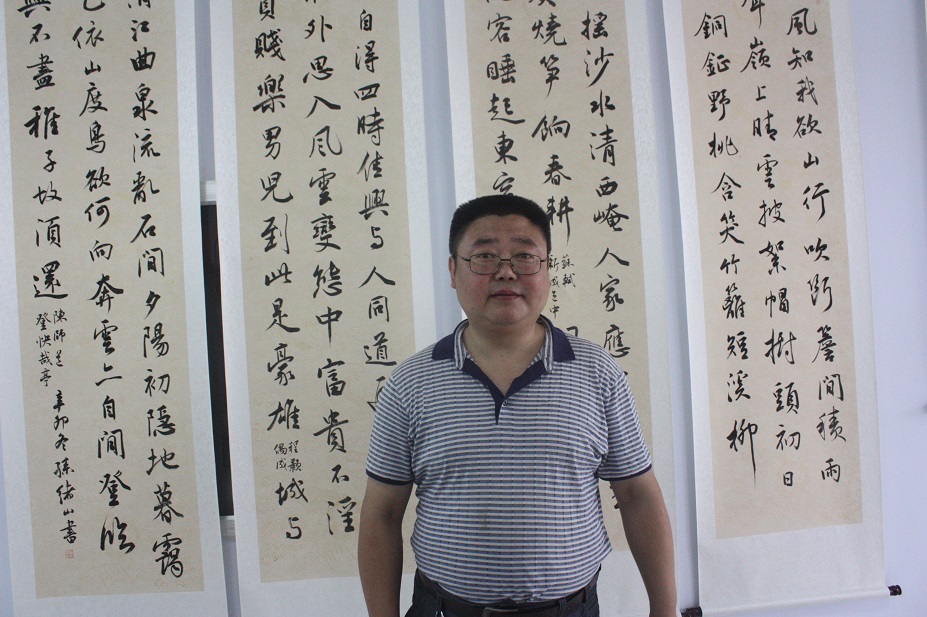 風知我欲山行吹斷簷間積雨
嶺上晴雲披絮帽樹頭初日
銅鉦野桃含笑竹籬短溪柳
搖沙水清西崦人家應
燒笋餉春耕
蘇軾
新城道中
容睡起東窗
自得四時佳興与人同道
外思入風雲變態中富貴不淫
貧賤樂男兒到此是豪雄
程顥
偶成
城与
清江曲泉流亂石間夕陽初隱地暮靄
已依山度鳥欲何向奔雲亦自閒登臨
興不盡稚子故須還
陳師道
登快哉亭
辛卯冬孫緒山書